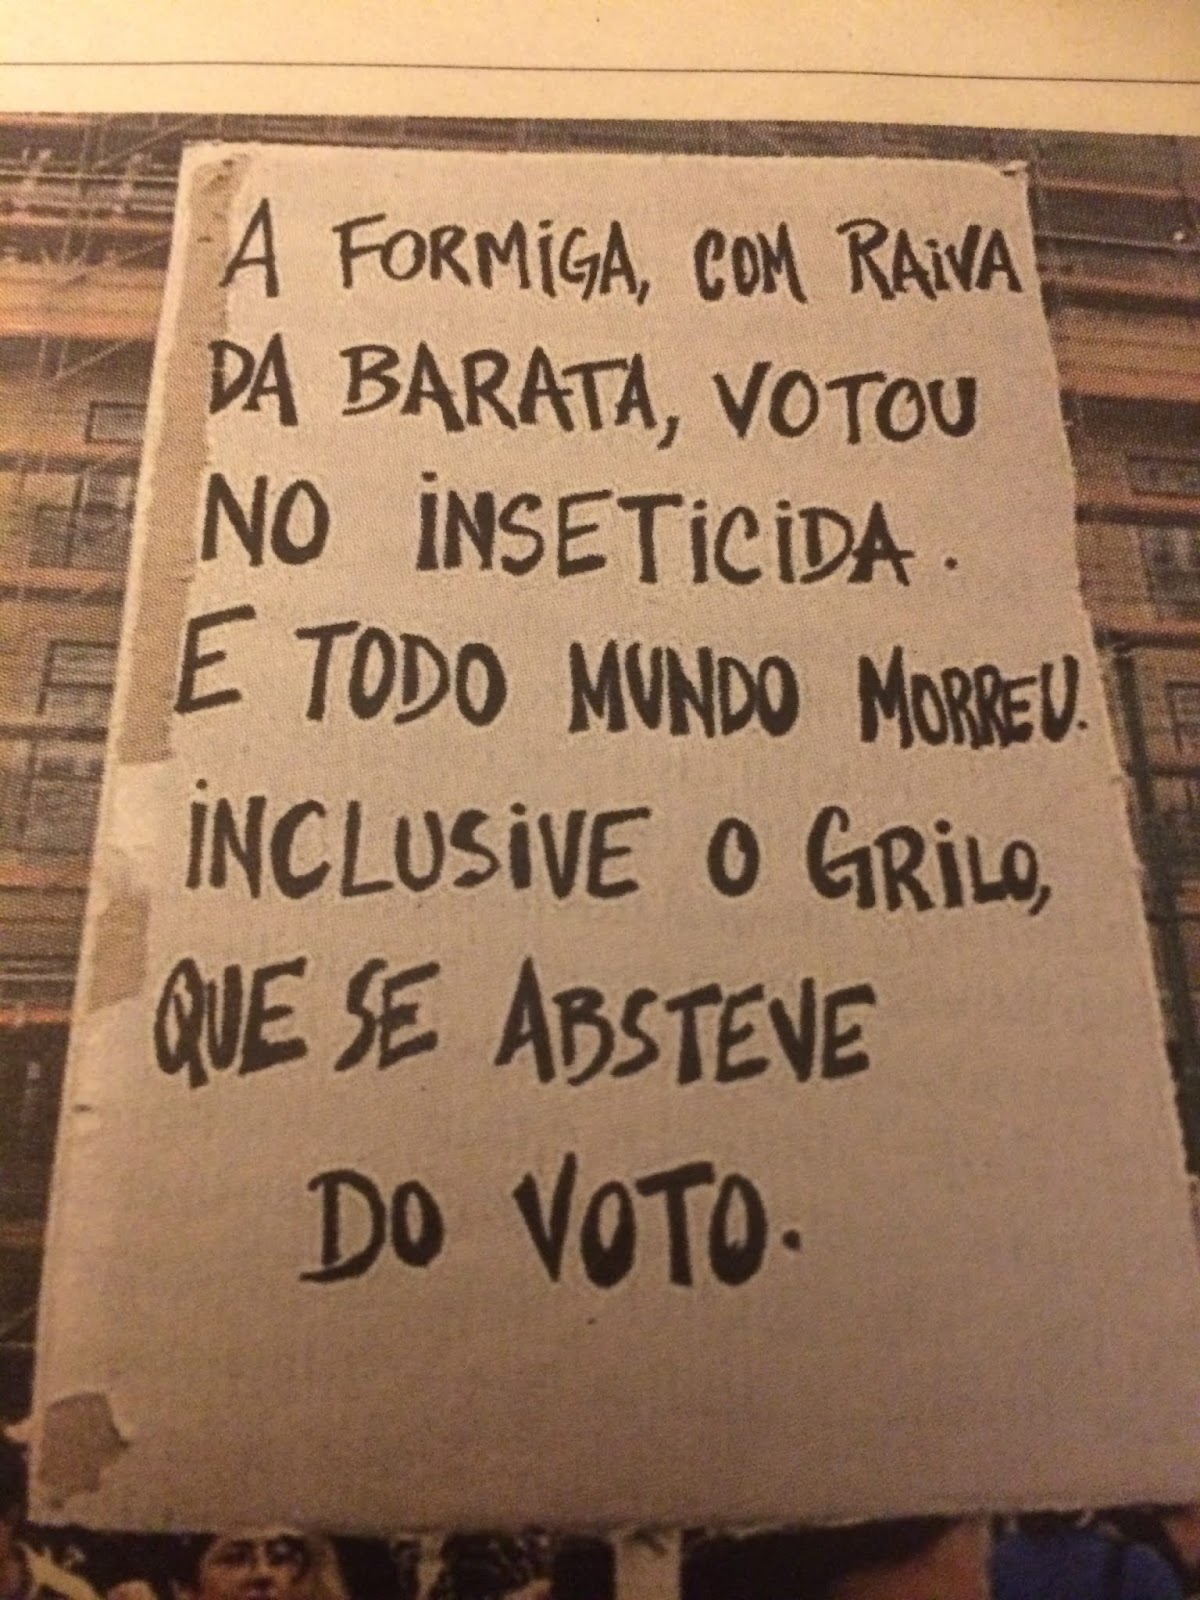 A FORMiGA, COM RAiVA
DA BARATA, VOTOU
NO iNSETiCiDA.
E TODO MUNDO MORREU.
iNCLUSiVE O GRiLO,
QUE SE ABSTEVE
DO VOTO.